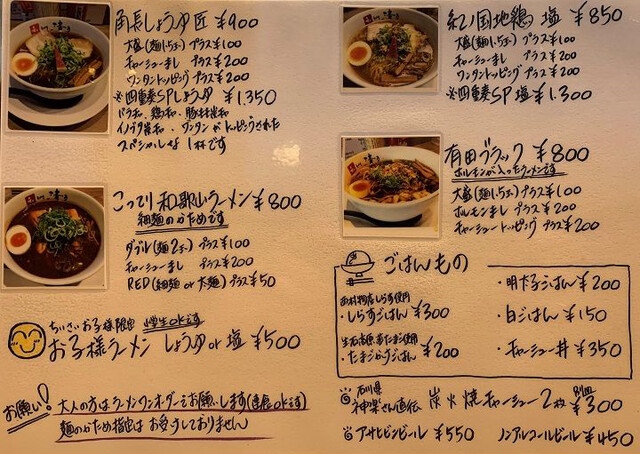 角長しょうゆ匠 ¥900
大盛(麺1.5玉) プラス¥100
チャーシューまし プラス¥200
ワンタントッピング プラス¥200
※四重奏SPしょうゆ ¥1,350
バラ和、鶏和、豚
ワンタンがトッピングされた
スペシャルな1杯です
こってり和歌山ラーメン ¥800
細麺のかためです
ダブル(麺2玉) プラス¥100
チャーシューまし プラス¥200
RED(細麺or太麺) プラス¥50
ちいさいお子様限定 小学生okです
お子様ラーメン しょうゆor塩 ¥500
お願い!
大人の方はラーメンワンオーダーをお願いします(連食okです)
麺のかため指定はお受けしておりません
紀ノ国地鶏 塩 ¥850
大盛(麺1.5玉) プラス¥100
チャーシューまし プラス¥200
ワンタントッピング プラス¥200
※四重奏SP塩 ¥1,300
有田ブラック ¥800
ホルモンが入ったラーメンです
大盛(麺1.5玉) プラス¥100
ホルモンまし プラス¥200
チャーシュートッピング プラス¥200
ごはんもの
しらす使用
・しらすごはん ¥300
たまご使用
・たまごかけごはん ¥200
・明太子ごはん ¥200
・白ごはん ¥150
・チャーシュー丼 ¥350
石川県
神楽さん直伝 炭火焼チャーシュー2枚 別皿 ¥300
アサヒビンビール ¥550
ノンアルコールビール ¥450